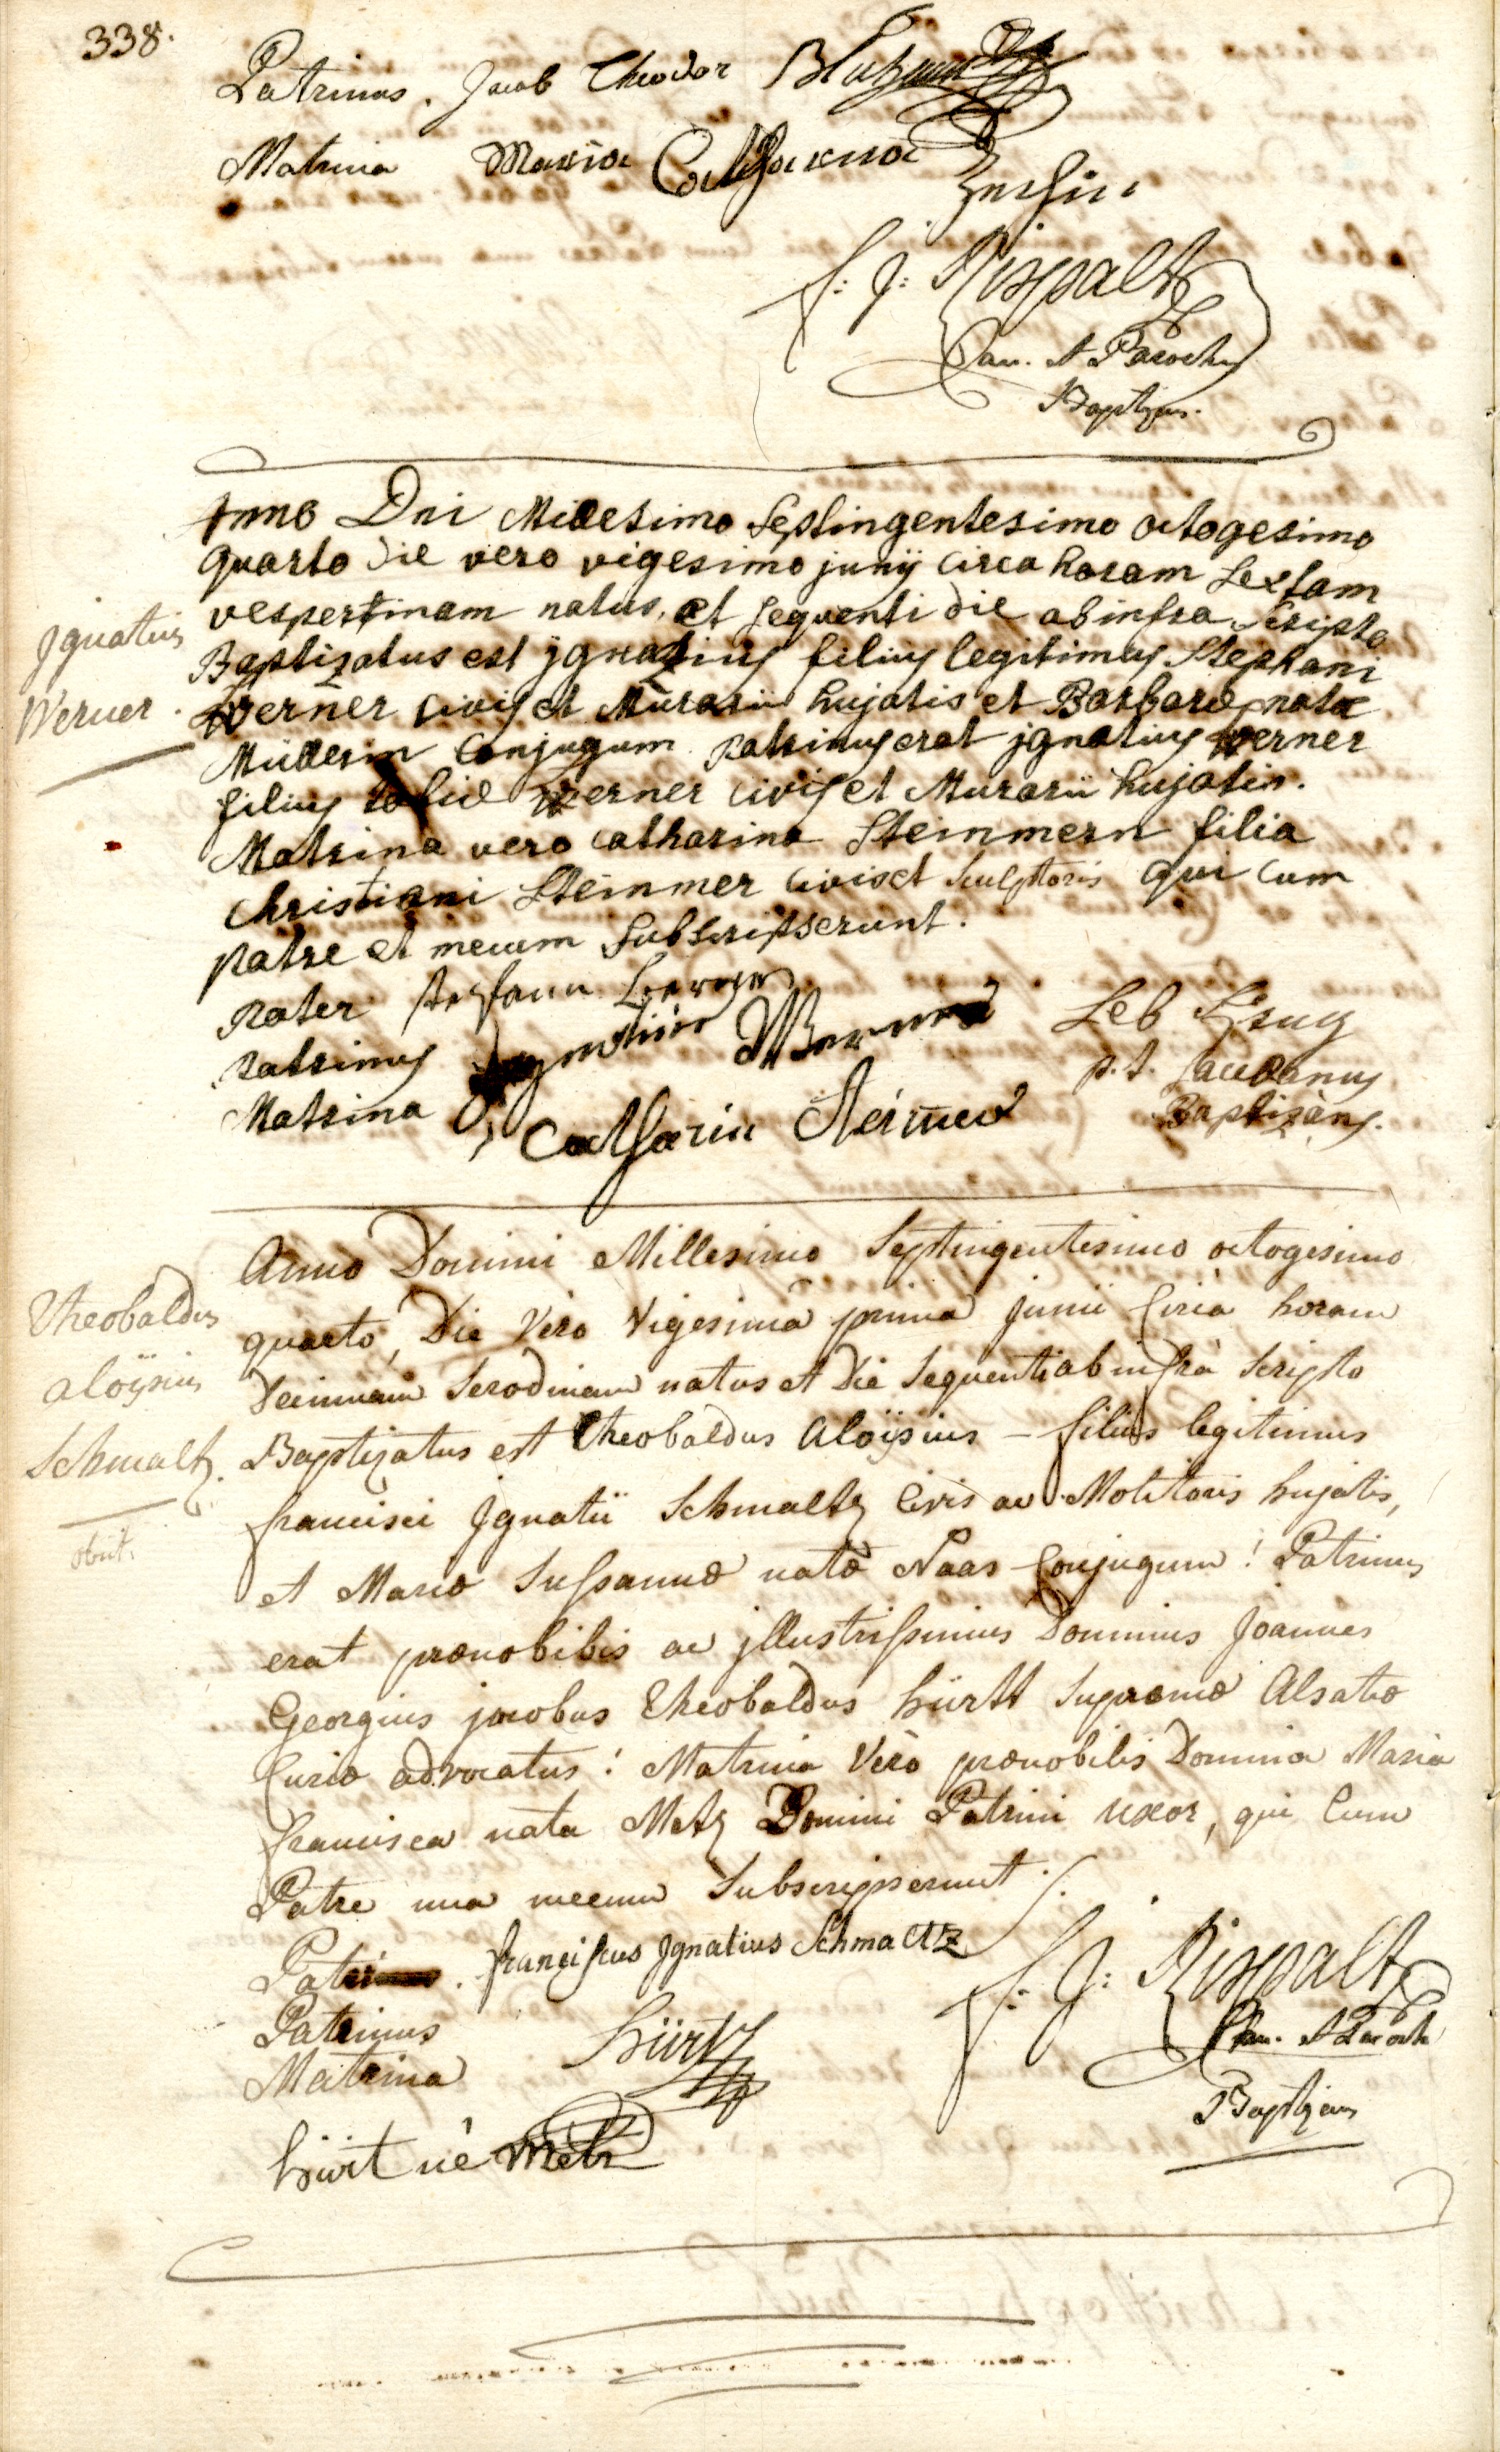 338.
Patrinus. Jacob Theodor
Matrina Maria Catharina
f: J: Rispalt
Can. et Parochus
Baptizans.
Ignatius
Werner.
Anno Dni Millesimo Septingentesimo octogesimo
quarto die vero vigesimo junÿ circa horam Sextam
vespertinam natus, et sequenti die ab infra Scripto
Baptizatus est jgnatius filius legitimus Stephani
werner civis et Murarii hujatis et Barbaræ natæ
Müllerin Conjugum. patrinus erat jgnatius werner
filius werner civis et Murarii hujatis.
Matrina vero catharina Steinmern filia
Christiani Steinmer civis et Sculptoris qui cum
patre et mecum subscripserunt.
pater
patrinus
Matrina Catharin
Baptizans.
Theobaldus
aloÿsius
Schmaltz.
obiit.
Anno Domini Millesimo Septingentesimo octogesimo
quarto, Die Vero Vigesima prima Junii Circa horam
Decimam Serotinam natus et Die Sequenti ab infrà Scripto
Baptizatus est Theobaldus Aloÿsius – filius legitimus
francisci Jgnatii Schmaltz Civis ac Molitoris hujatis,
et Mariæ Susannæ natæ Naas Conjugum! Patrinus
erat prænobilis ac jllustrissimus Dominus Joannes
Georgius jacobus Theobaldus hürtt Supremæ Alsatiæ
Curiæ advocatus! Matrina Vero prænobilis Domina Maria
francisca nata Metz Domini Patrini uxor, qui Cum
Patre una mecum Subscripserunt ./.
Pater. franciscus Jgnatius Schmaltz
f: J: Rispalt
Can. et Paroch
Patrinus hürtt
Matrina
Baptizans
hürt né Metz